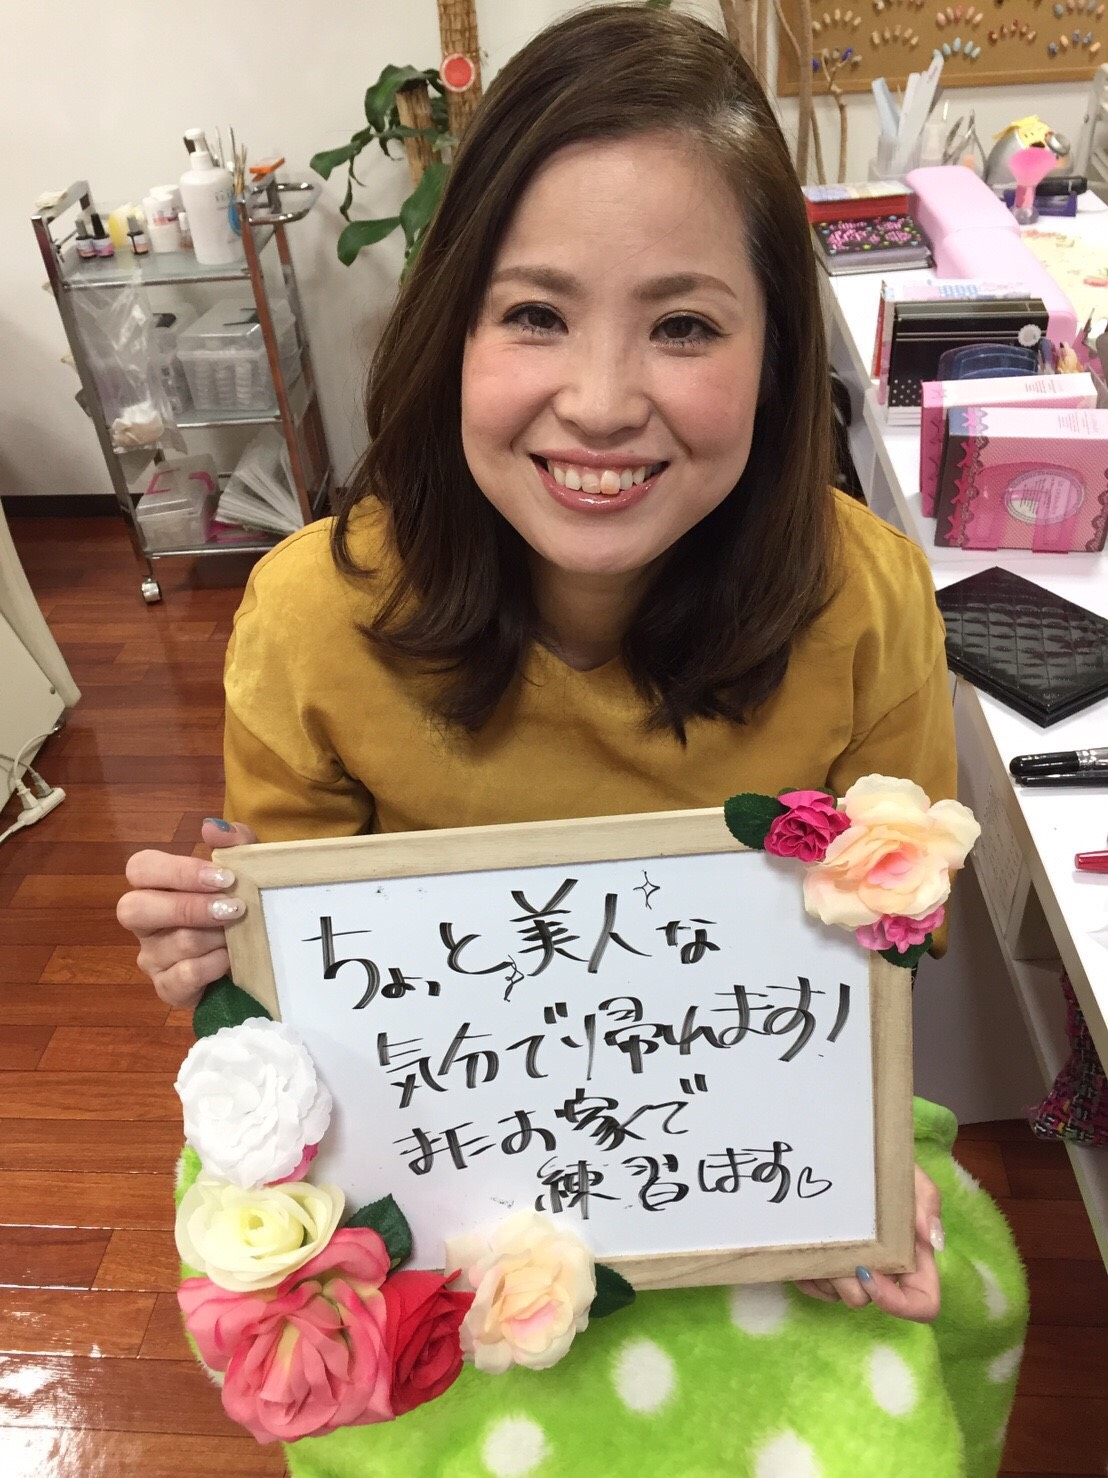 ちょっと美人な
気分で帰れます!
またお家で
練習します♡